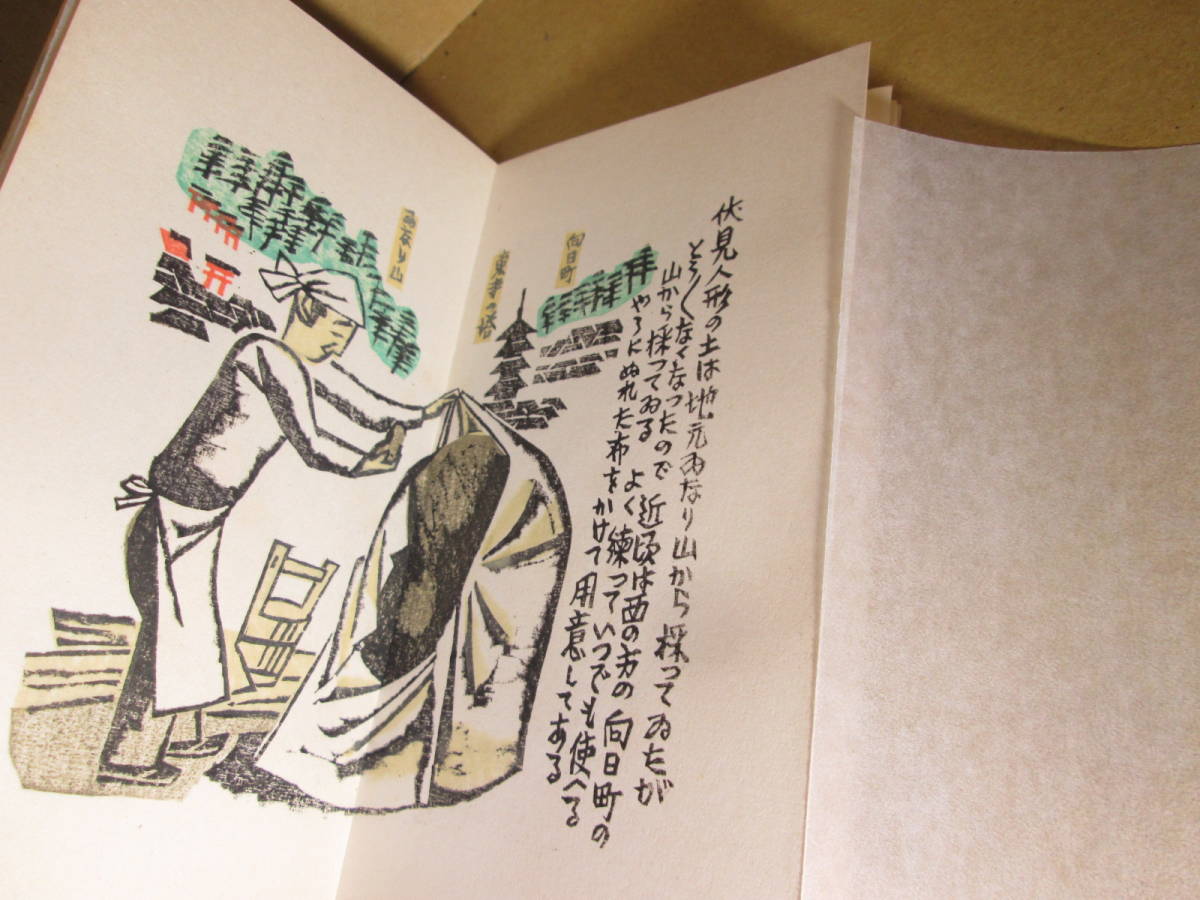 伏見人形の土は地元ゐなり山から採ってゐたが
とう〳〵なくなったので 近頃は西の方の向日町の
山から採ってゐる よく練っていつでも使へる
やうにぬれた布をかけて用意してある
向日町
東寺の塔
ゐなり山